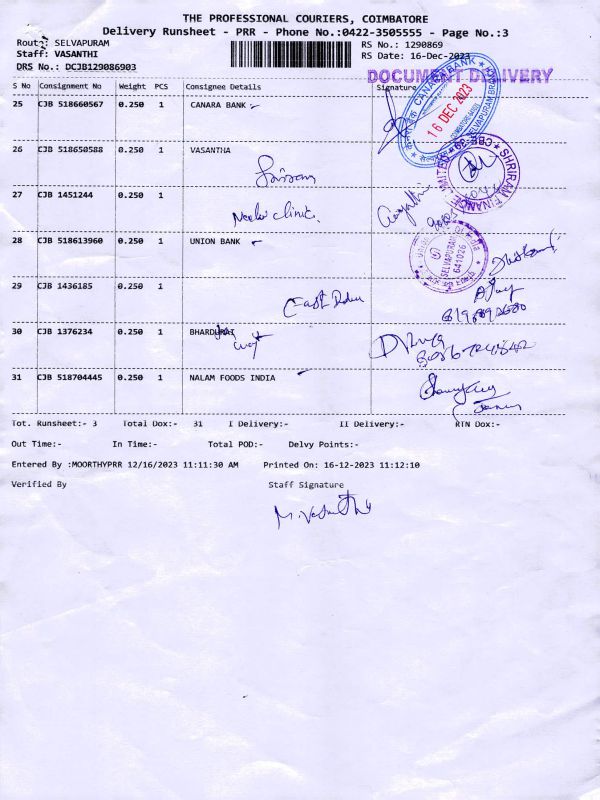 THE PROFESSIONAL COURIERS, COIMBATORE
Delivery Runsheet - PRR - Phone No.:0422-3505555 - Page No.:3
Route: SELVAPURAM
RS No.: 1290869
Staff: VASANTHI
RS Date: 16-Dec-2023
DRS No.: DCJB129086903
DOCUMENT DELIVERY
S No Consignment No Weight PCS Consignee Details Signature
25 CJB 518660567 0.250 1 CANARA BANK
CANARA BANK
16 DEC 2023
26 CJB 518650588 0.250 1 VASANTHA
SHRIRAM FINANCE LIMITED
27 CJB 1451244 0.250 1
Neelai clinic.
28 CJB 518613960 0.250 1 UNION BANK
SELVAPURAM
641026
29 CJB 1436185 0.250 1
East
30 CJB 1376234 0.250 1
31 CJB 518704445 0.250 1 NALAM FOODS INDIA
Tot. Runsheet:- 3 Total Dox:- 31 I Delivery:- II Delivery:- RTN Dox:-
Out Time:- In Time:- Total POD:- Delvy Points:-
Entered By :MOORTHYPRR 12/16/2023 11:11:30 AM Printed On: 16-12-2023 11:12:10
Verified By Staff Signature
M. Vasantha